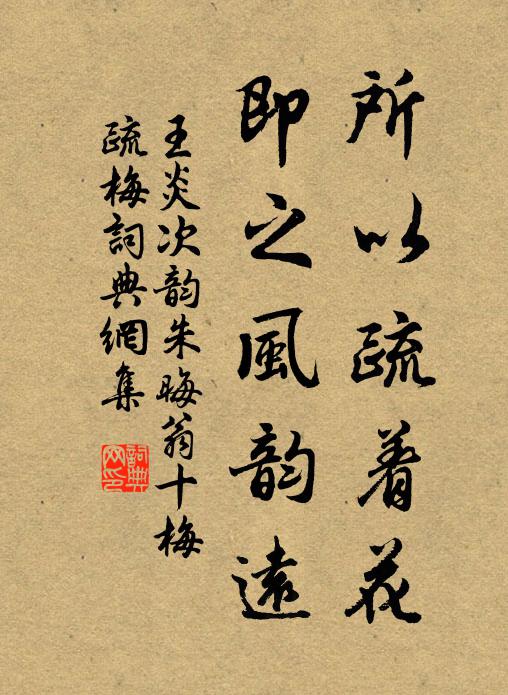 所以疏着花
即之風韵遠
王炎次韵朱晦翁十梅
疏梅詞典網集
詞典网印